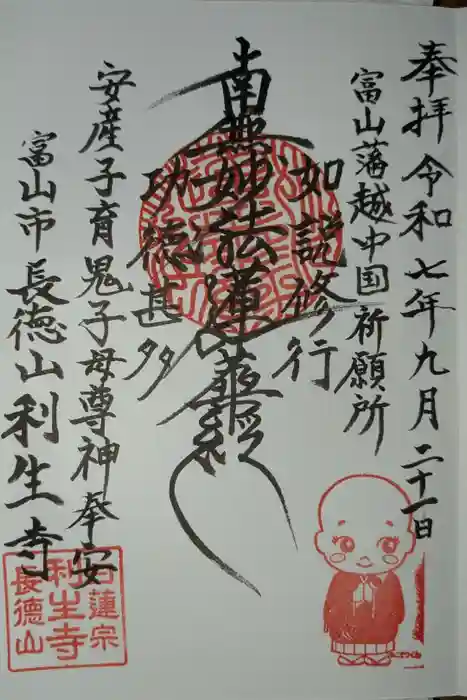 奉拝 令和七年九月二十一日
富山藩越中国祈願所
如説修行
南無妙法蓮華経
功徳甚多
安産子育鬼子母尊神奉安
富山市 長徳山利生寺
日蓮宗
利生寺
長徳山